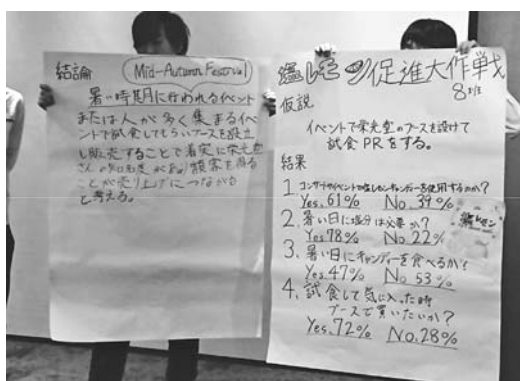 結論
Mid-Autumn Festival
暑い時期に行われるイベント
または人が多く集まるイベ
ントで試食してもらいブースを設立
し販売することで着実に栄光堂
さんの知名度があがり顧客を得る
ことが売り上げにつながる
と考える。
塩レモン促進大作戦
仮説
イベントで栄光堂のブースを設けて
試食PRをする。
結果
1. コンサートやイベントで塩レモンキャンディーを使用するのか?
Yes. 61% No. 39%
2. 暑い日に塩分は必要か?
Yes. 78% No. 22%
3. 暑い日にキャンディーを食べるか?
Yes. 47% No. 53%
4. 試食して気に入った時
ブースで買いたいか?
Yes. 72% No. 28%
塩レモン